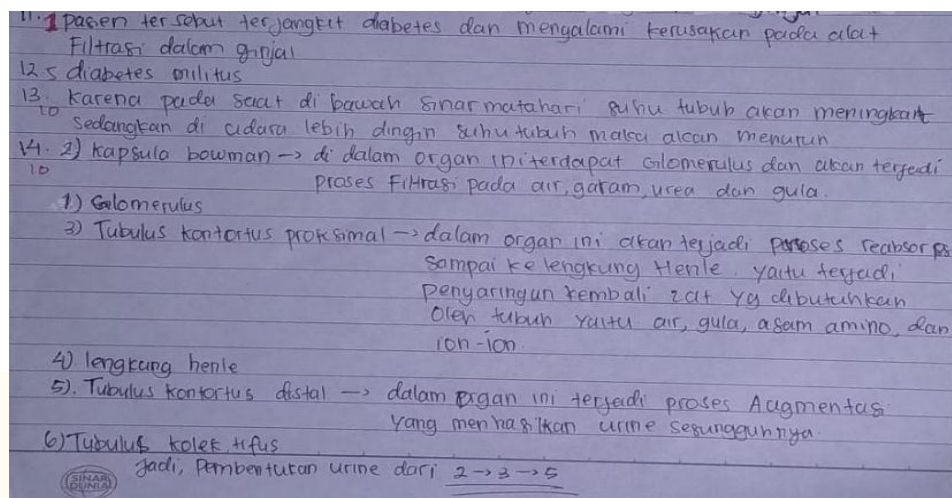 11. 1 pasien tersebut terjangkit diabetes dan mengalami kerusakan pada alat
Filtrasi dalam ginjal
12. 5 diabetes militus
13. Karena pada saat di bawah sinar matahari suhu tubuh akan meningkat
10 sedangkan di udara lebih dingin suhu tubuh maka akan menurun
14. 2) Kapsula bowman -> di dalam organ ini terdapat Glomerulus dan akan terjadi
10 proses Filtrasi pada air, garam, urea dan gula.
1) Galomerulus
3) Tubulus kontortus proksimal -> dalam organ ini akan terjadi proses reabsorpsi
sampai ke lengkung Henle. yaitu terjadi
penyaringan kembali zat yg dibutuhkan
oleh tubuh yaitu air, gula, asam amino, dan
ion-ion.
4) lengkung henle
5). Tubulus kontortus distal -> dalam organ ini terjadi proses Augmentasi
yang menhasilkan urine sesungguhnya.
6) Tubulus kolektifus
Jadi, Pembentukan urine dari 2 -> 3 -> 5
SINAR
DUNIA